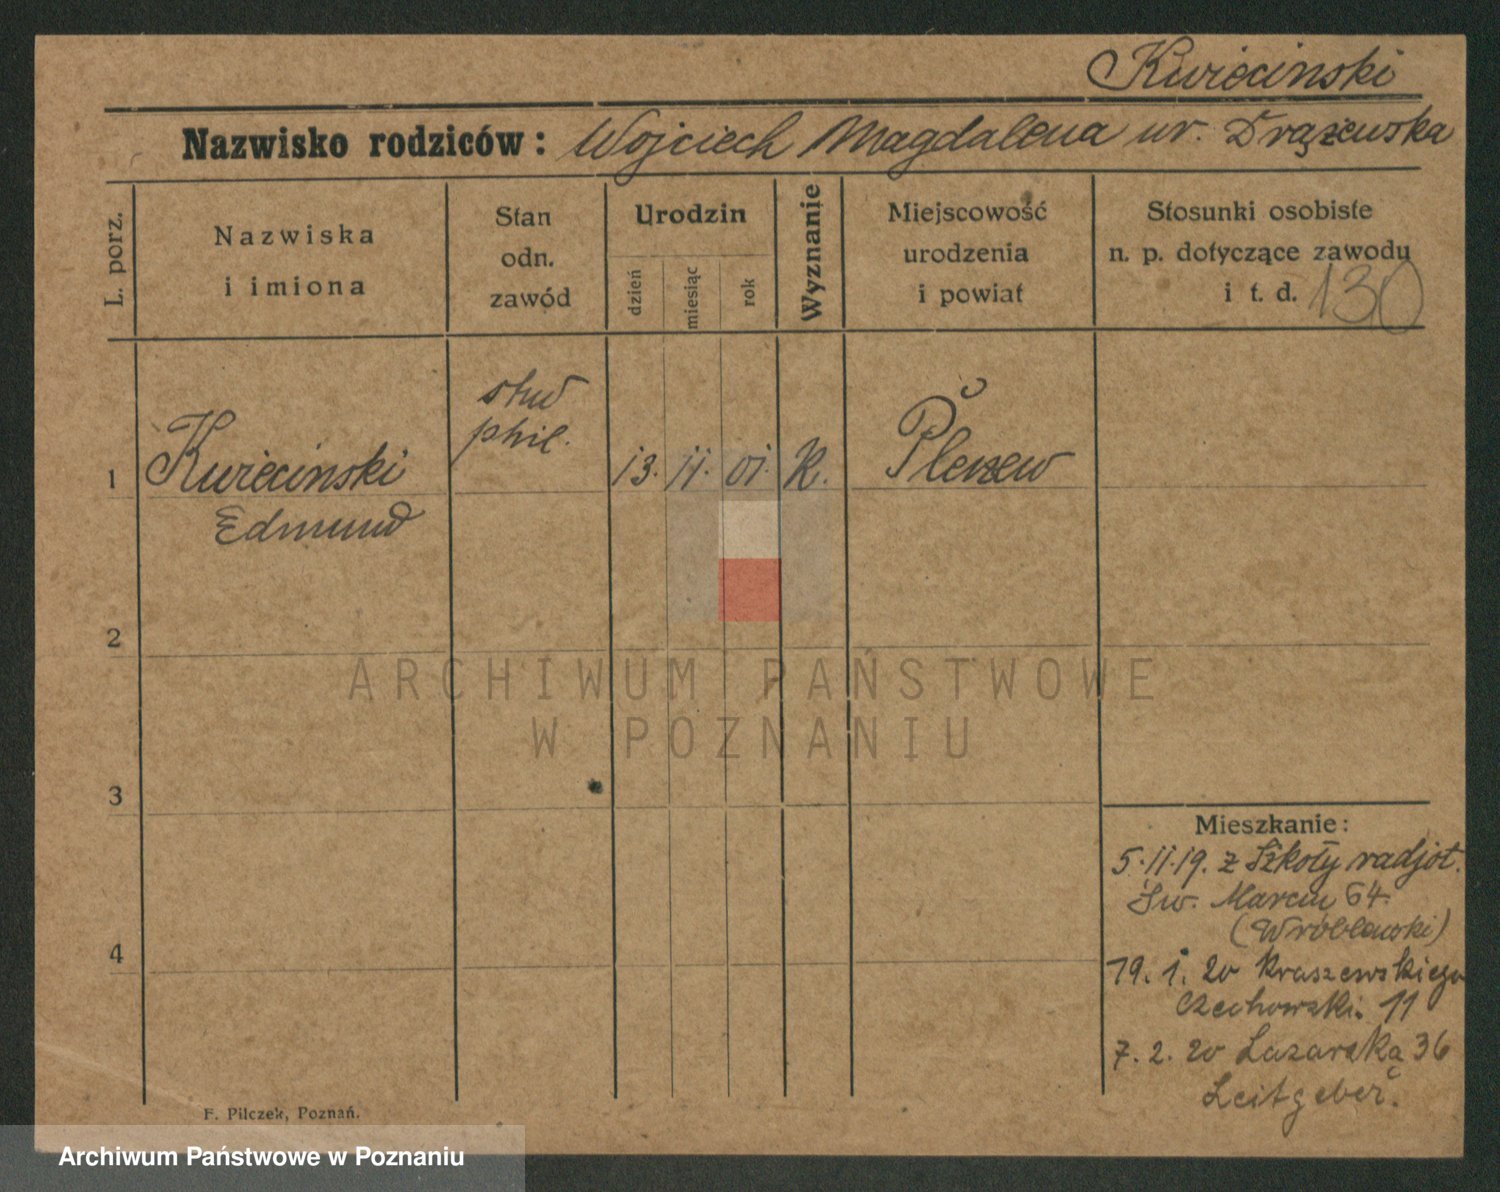 Kwieciński
Nazwisko rodziców: Wojciech Magdalena ur. Drążewska
L. porz.
Nazwiska
i imiona
Stan
odn.
zawód
Urodzin
dzień
miesiąc
rok
Wyznanie
Miejscowość
urodzenia
i powiat
Stosunki osobiste
n. p. dotyczące zawodu
i t. d. 130
stud
phil.
1 Kwieciński 13. 11. 01. K. Pleszew
Edmund
2
ARCHIWUM PAŃSTWOWE
W POZNANIU
3
Mieszkanie:
5.11.19. z Szkoły radjot.
Św. Marcin 64.
(Wróblewski)
4
19. 1. 20 Kraszewskiego
Czechowski. 11
7. 2. 20 Lazarska 36
Leitgeber.
F. Pilczek, Poznań.
Archiwum Państwowe w Poznaniu